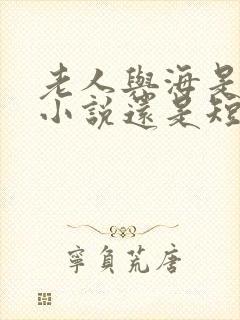 老人與海是
小說還是短
寧負荒唐